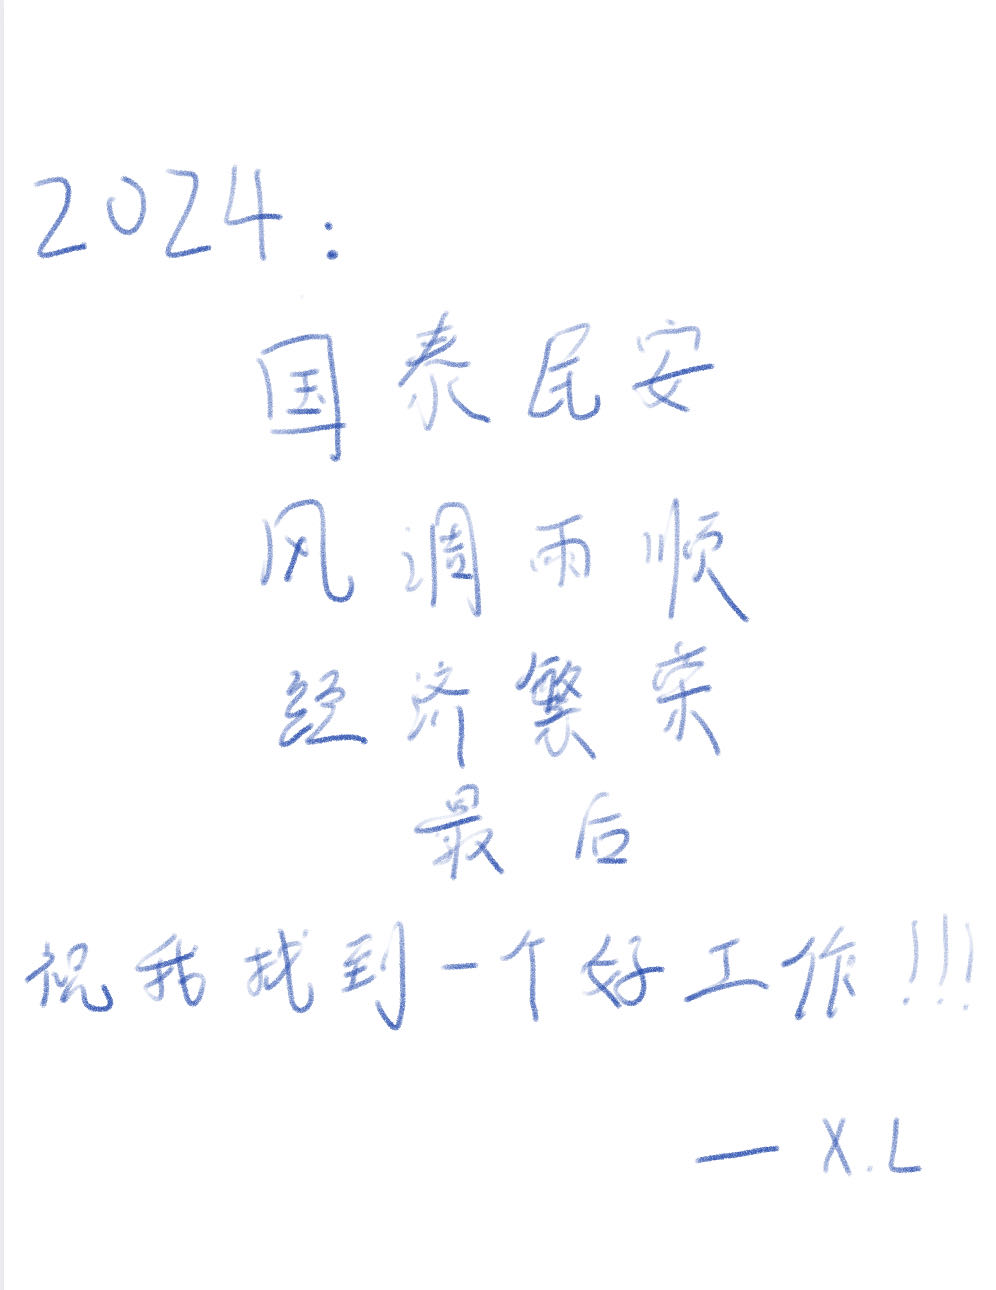 2024:
国泰民安
风调雨顺
经济繁荣
最后
祝我找到一个好工作!!!
— X.L